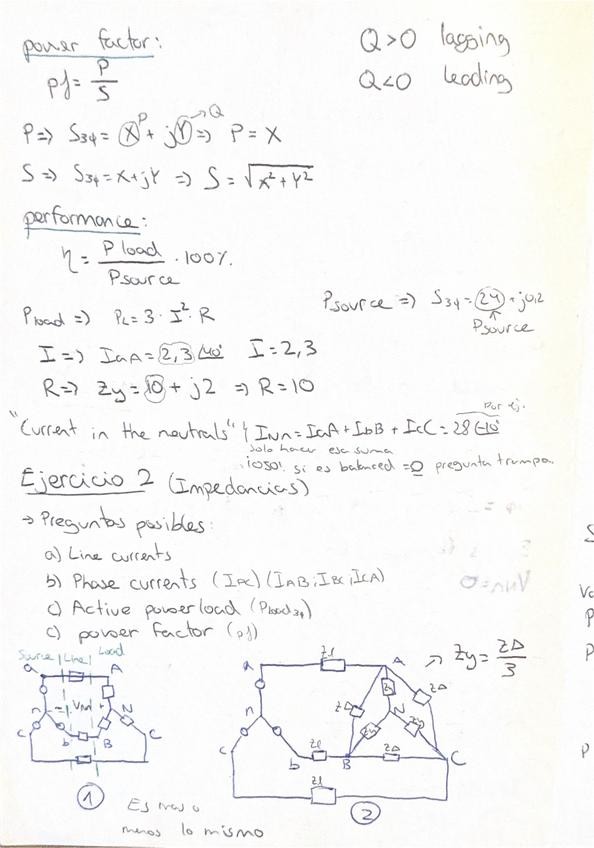 power factor:
Q>0 lagging
pf = P/S
Q<0 leading
P => S3φ = X + jY => P = X
P
→ Q
S => S3φ = X + jY => S = √X² + Y²
performance:
η = P load / Psource · 100%
Psource => S3φ = 24 + j0,2
Psource
Pload => PL = 3 · I² · R
I => IaA = 2,3 ∠40° I = 2,3
R => Zy = 10 + j2 => R = 10
Por ej.
"Current in the neutrals" { INn = IaA + IbB + IcC = 28 ∠-10°
Solo hacer esa suma
¡OJO! si es balanced = 0 pregunta trampa.
Ejercicio 2 (Impedancias)
→ Preguntas posibles:
a) Line currents
b) Phase currents (IPC) (IAB, IBC, ICA)
c) Active power load (Pload3φ)
c) power factor (pf)
Source | Line | Load
a A
n - VnN + N
c b B C
1
Es mas o
menos lo mismo
a Zl A → Zy = ZΔ/3
ZΔ Zy ZΔ
n N
Zy Zy
c b Zl B ZΔ C
Zl
2